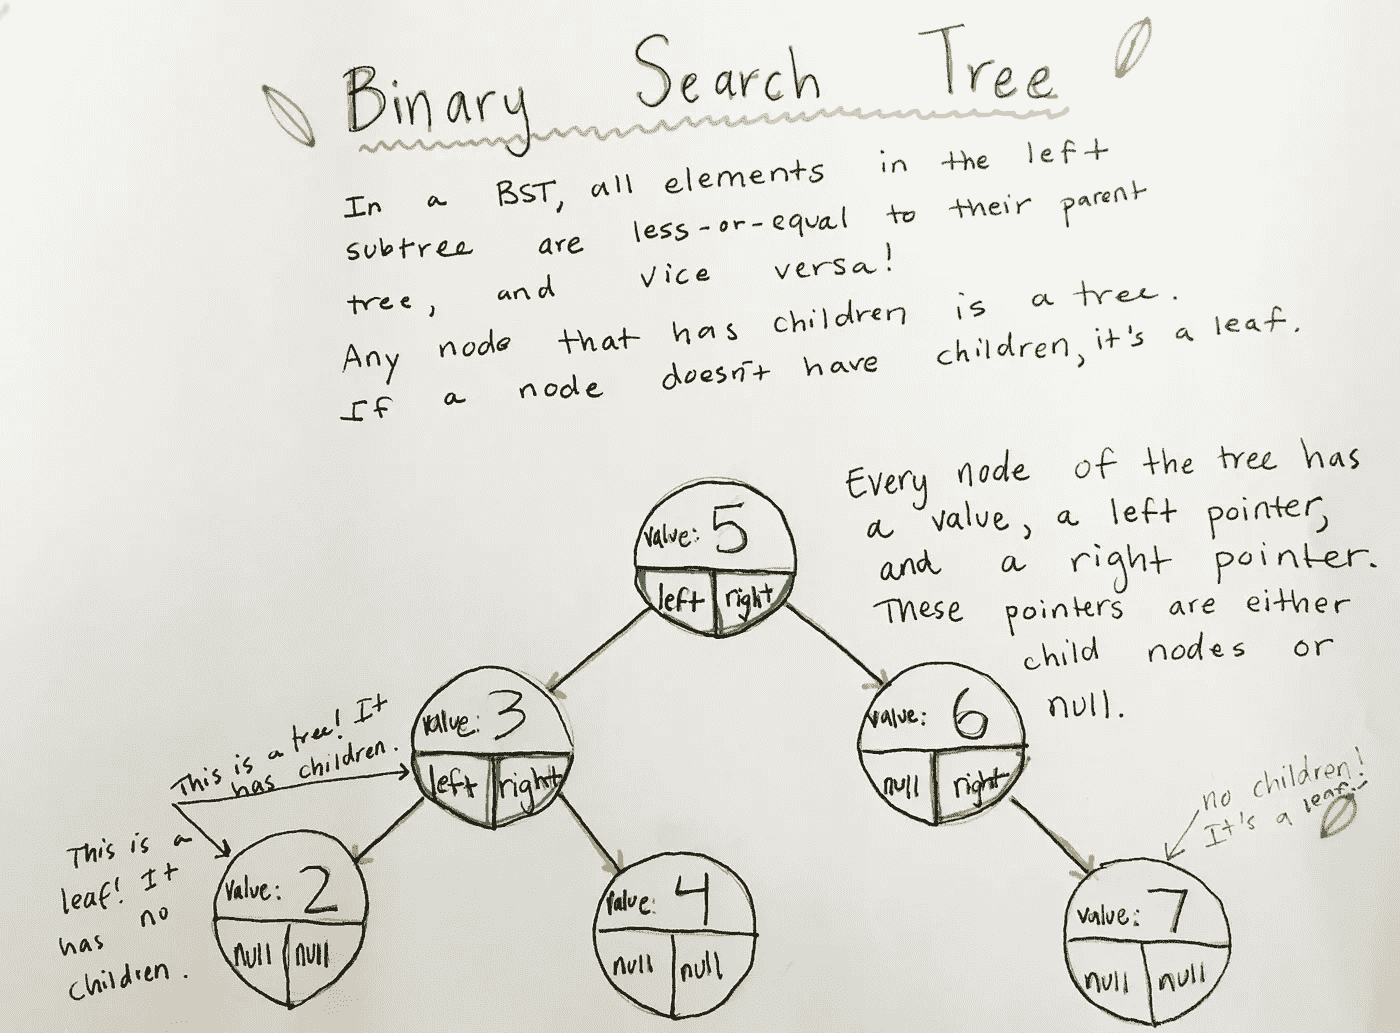 Binary Search Tree
In a BST, all elements in the left
subtree are less-or-equal to their parent
tree, and vice versa!
Any node that has children is a tree.
If a node doesn't have children, it's a leaf.
Every node of the tree has
a value, a left pointer,
and a right pointer.
These pointers are either
child nodes or
null.
value: 5
left right
This is a tree! It
has children.
value: 3
left right
value: 6
null right
This is a
leaf! It
has no
children.
value: 2
null null
value: 4
null null
no children!
It's a leaf.
value: 7
null null